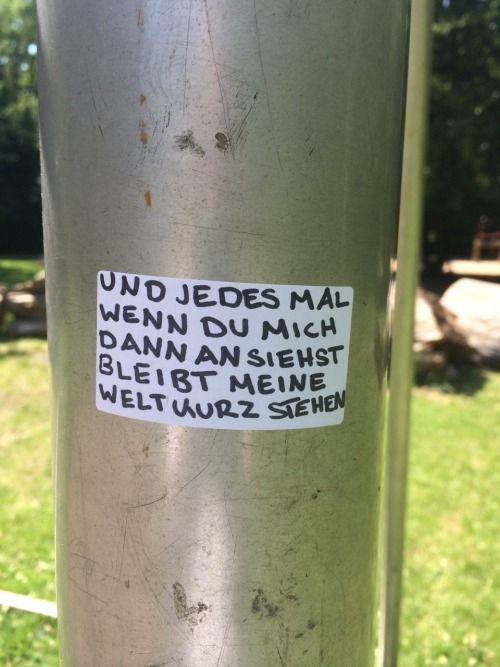 UND JEDES MAL
WENN DU MICH
DANN ANSIEHST
BLEIBT MEINE
WELT KURZ STEHEN